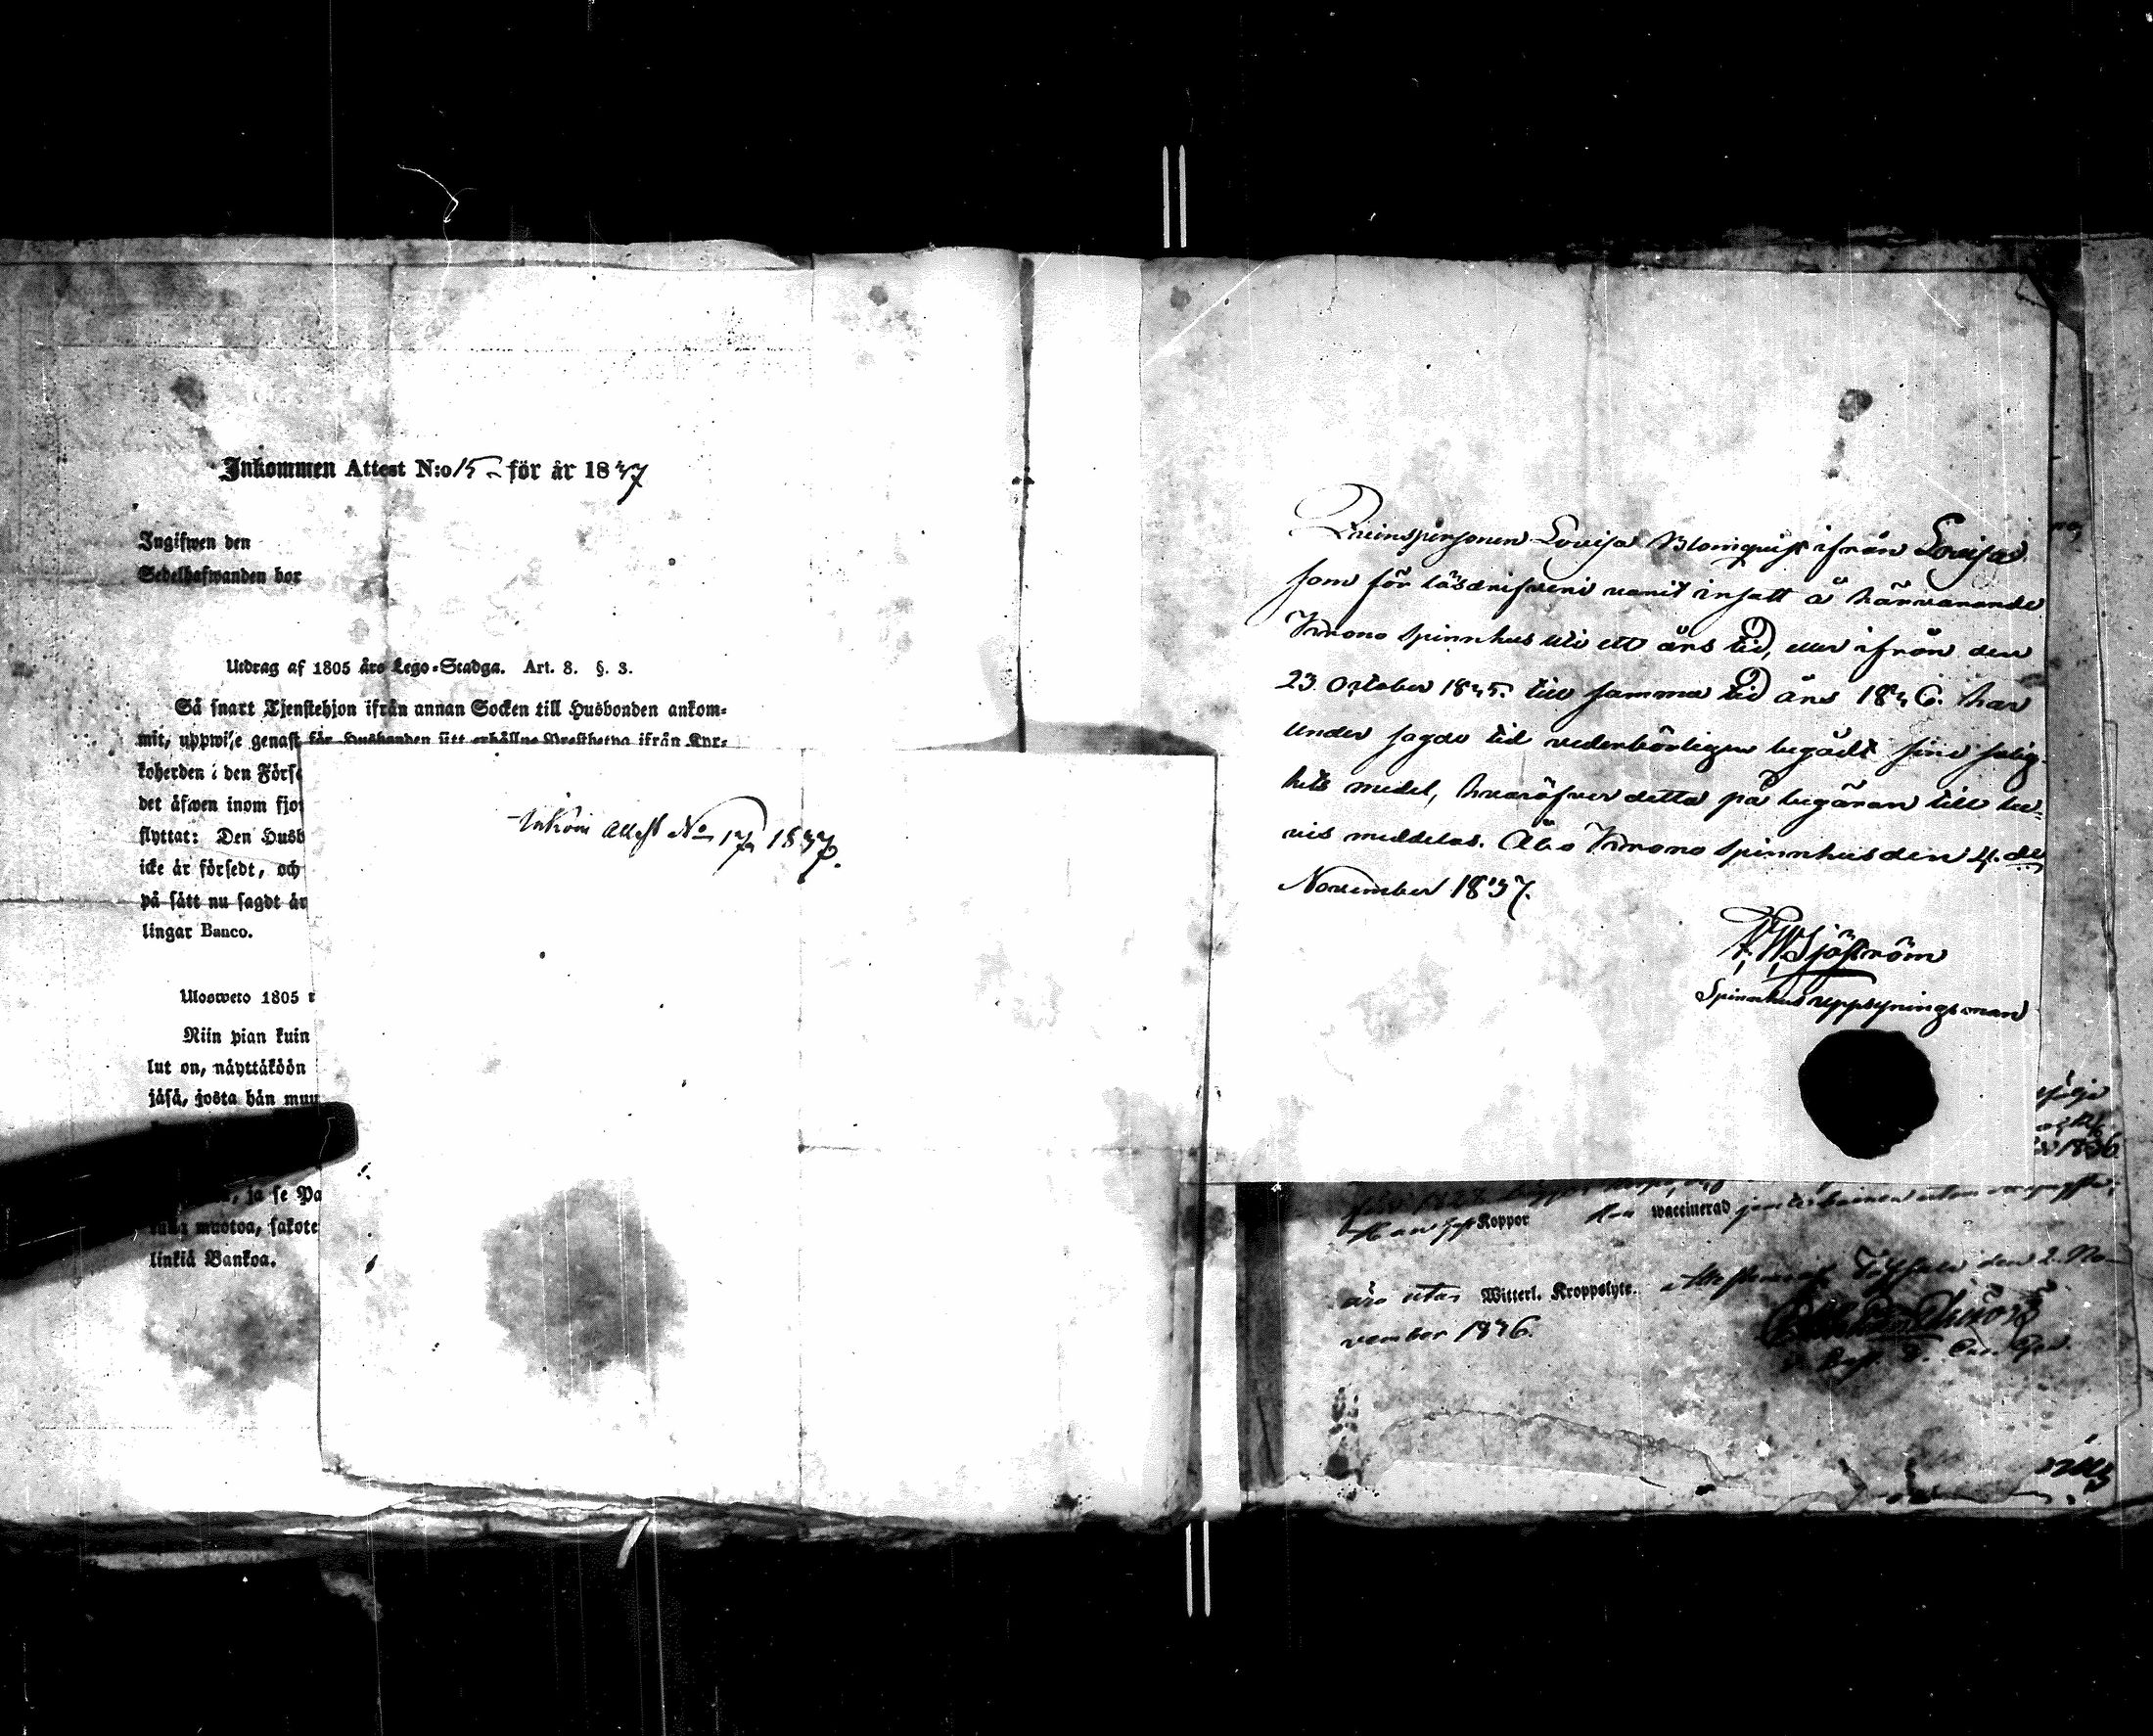 Inkommen Attest N:o 15 för år 1837
Ingifwen den
Sedelhafwanden bor
Utdrag af 1805 års Lego-Stadga. Art. 8. §. 3.
Så snart Tjenstehjon ifrån annan Socken till Husbonden ankom-
mit, uppwise genast för Husbonden sitt erhållne Prestbetyg ifrån Kyr-
koherden i den Förs
det äfwen inom fjo
flyttat: Den Husb
icke är försedt, och
på sätt nu sagdt är
lingar Banco.
Ulosweto 1805
Niin pian kuin
lut on, näyttäköön
jäsä, josta hän muu
ja se Pa
muotoa, sakote
linkiä Bankoa.
Inkom Attest No 17 1837.
Qvinspersonen Lovisa Blomqvist ifrån Lovisa
som för lösdrifveri varit insatt å härvarande
Krono Spinnhus uti ett års tid, eller ifrån den
23 October 1835. till samma tid års 1836. har
under sagde tid vederbörligen begådt sine salig-
hets medel, hvaröfver detta på begäran till be-
vis meddelas. Åbo Krono Spinnhus den 4. de
November 1837.
Sjöström
Spinnhus uppsyningsman
Koppor waccinerad
utan Witterl. Kroppslyte. den 2. No-
vember 1836.